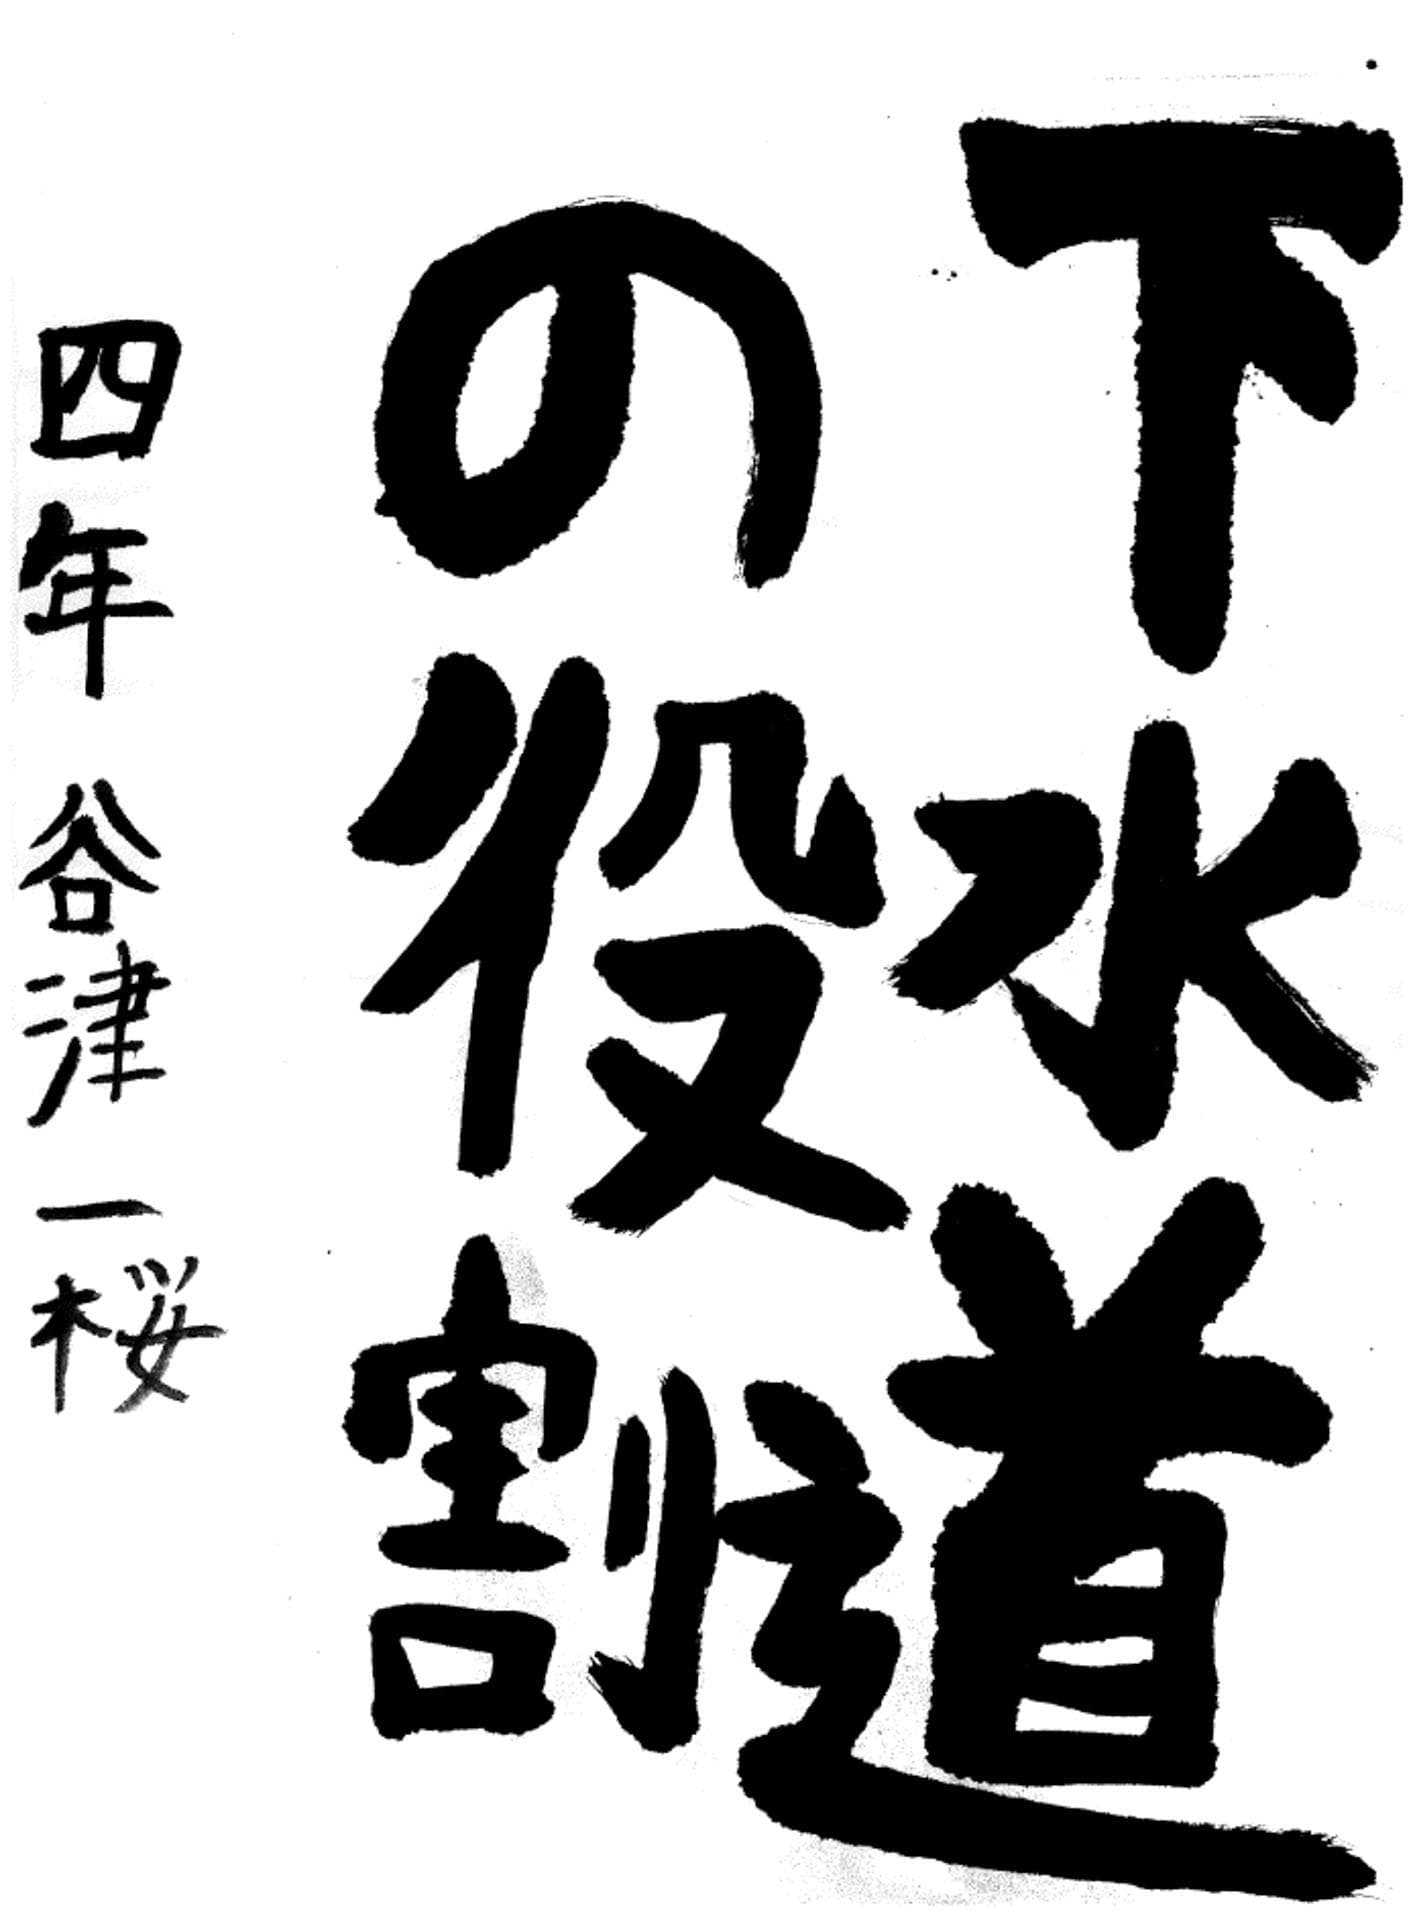 下水道
の役割
四年 谷津一桜